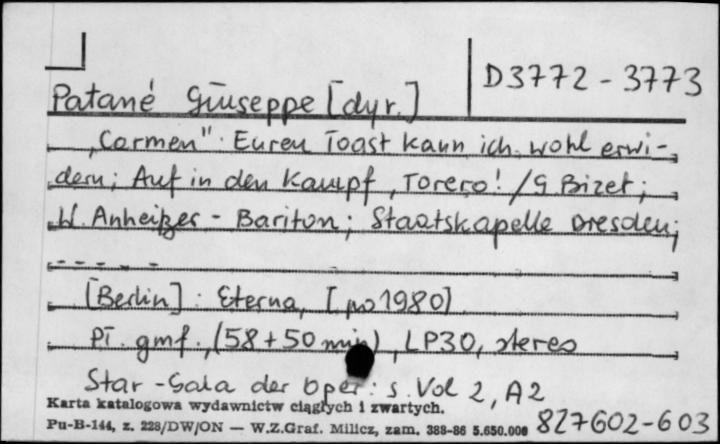 D3772 - 3773
Patané Giuseppe [dyr.]
„Carmen": Euren Toast kann ich wohl erwi-
dern; Auf in den Kampf, Torero! / G Bizet;
W. Anheißer - Bariton; Staatskapelle Dresden;
- - - - -
[Berlin]: Eterna, [po 1980]
Pł. gmf., (58+50 min), LP30, stereo
Star-Gala der Oper: s. Vol 2, A2
Karta katalogowa wydawnictw ciągłych i zwartych.
Pu-B-144, z. 228/DW/ON — W.Z.Graf. Milicz, zam. 388-86 5.650.000
827602-603